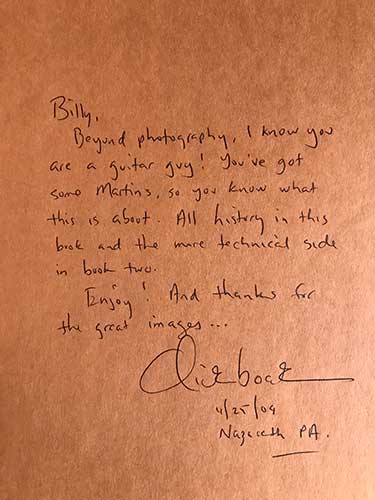 Billy,
Beyond photography, I know you
are a guitar guy! You've got
some Martins, so you know what
this is about. All history in this
book and the more technical side
in book two.
Enjoy! And thanks for
the great images...
Dick Boak
4/25/09
Nazareth PA.